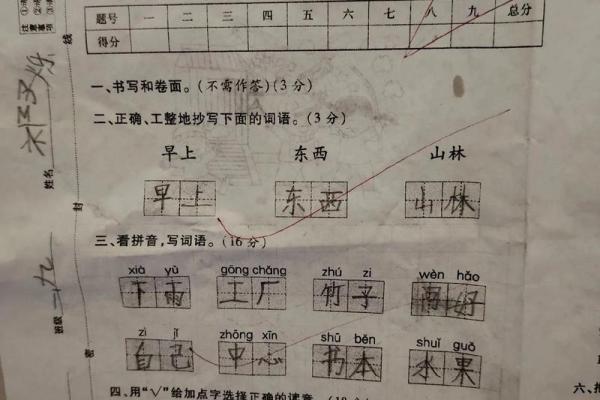 题号 一 二 三 四 五 六 七 八 九 总分
得分
一、书写和卷面。(不需作答)(3分)
二、正确、工整地抄写下面的词语。(3分)
早上 东西 山林
早上 东西 山林
三、看拼音,写词语。(16分)
xià yǔ gōng chǎng zhú zi wèn hǎo
下雨 工厂 竹子 问好
zì jǐ zhōng xīn shū běn shuǐ guǒ
自己 中心 书本 水果
四、用“√”给加点字选择正确的读音。
姓名
班级
线
封
密
注意事项
六、